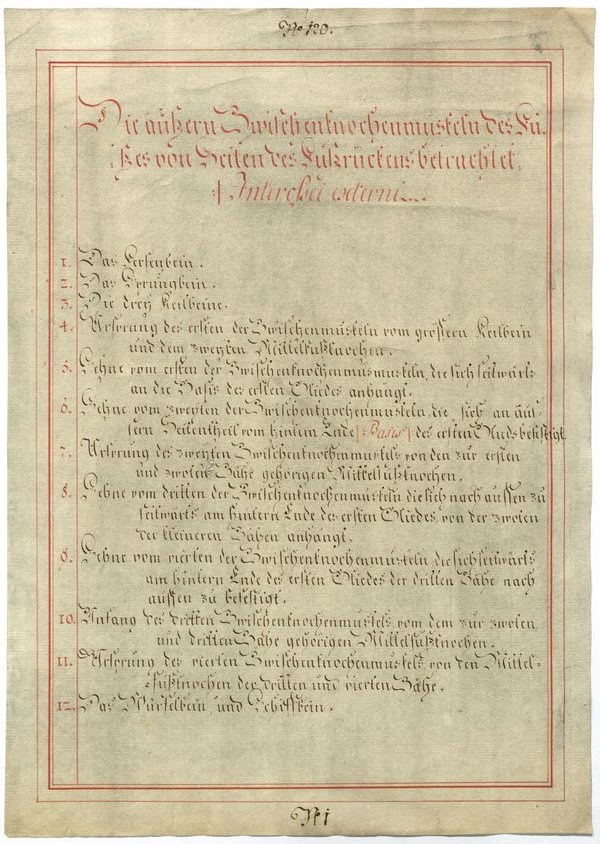 No 120.
Die äußern Zwischenknochenmuskeln des Fu-
ßes von Seiten des Fußrückens betrachtet
Interoßei externi
1. Das Fersenbein.
2. Das Sprungbein.
3. Die drey Keilbeine.
4. Ursprung des ersten der Zwischenmuskeln vom grössern Keilbein
und dem zweyten Mittelfußknochen.
5. Sehne vom ersten der Zwischenknochenmusmuskeln, die sich seitwärts
an die Basis des ersten Gliedes anhängt.
6. Sehne vom zweyten der Zwischenknochenmuskeln, die sich an äus-
sern Seitentheil vom hintern Ende /:Basis:/ des ersten Glieds befestigt.
7. Ursprung des zweyten Zwischenknochenmuskels von den zur ersten
und zwoten Zähe gehörigen Mittelfußknochen.
8. Sehne vom dritten der Zwischenknochenmuskeln die sich nach aussen zu
seitwärts am hintern Ende des ersten Gliedes, von der zwoten
der kleineren Zähen anhängt.
9. Sehne vom vierten der Zwischenknochenmuskeln die sich seitwärts
am hintern Ende des ersten Gliedes der dritten Zähe nach
aussen zu befestigt.
10. Anfang des dritten Zwischenknochenmuskels vom dem zur zwoten
und dritten Zähe gehörigen Mittelfußknochen.
11. Ursprung des vierten Zwischenknochenmuskels von den Mittel-
fußknochen der dritten und vierten Zähe.
12. Das Würfelbein, und Schiffbein.